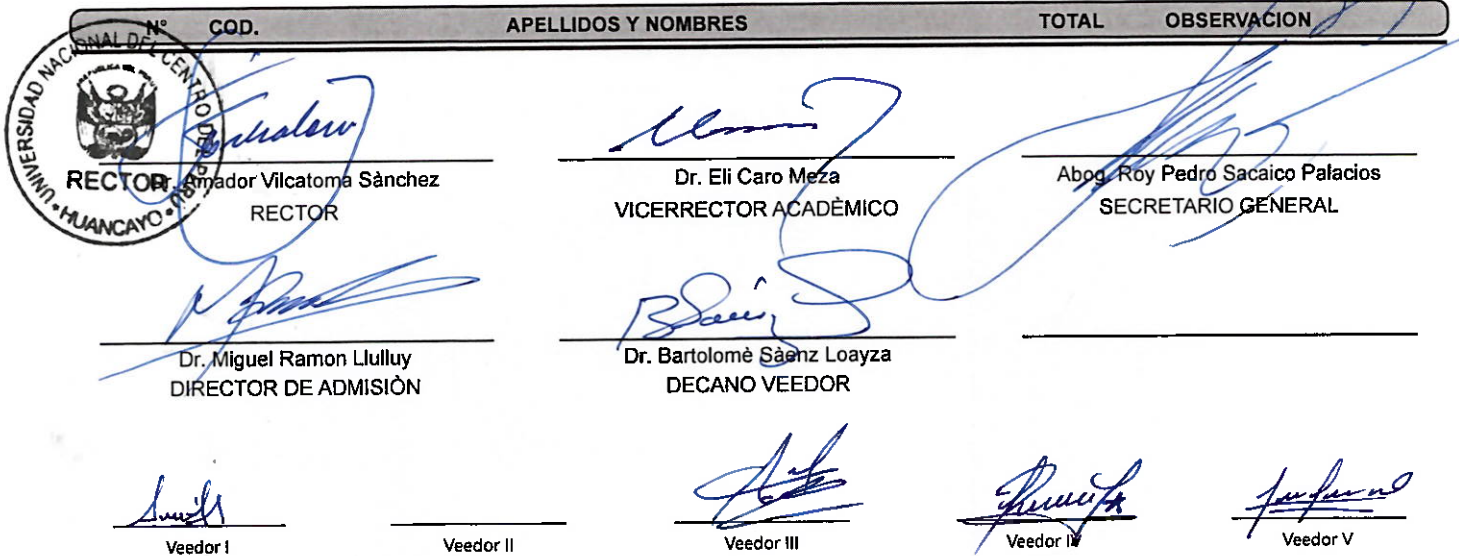 N° COD. APELLIDOS Y NOMBRES TOTAL OBSERVACION
UNIVERSIDAD NACIONAL DEL CENTRO DEL PERÚ
REPUBLICA DEL PERU
RECTOR
HUANCAYO
Dr. Amador Vilcatoma Sànchez
RECTOR
Dr. Eli Caro Meza
VICERRECTOR ACADÈMICO
Abog. Roy Pedro Sacaico Palacios
SECRETARIO GENERAL
Dr. Miguel Ramon Llulluy
DIRECTOR DE ADMISIÒN
Dr. Bartolomè Sàenz Loayza
DECANO VEEDOR
Veedor I
Veedor II
Veedor III
Veedor IV
Veedor V